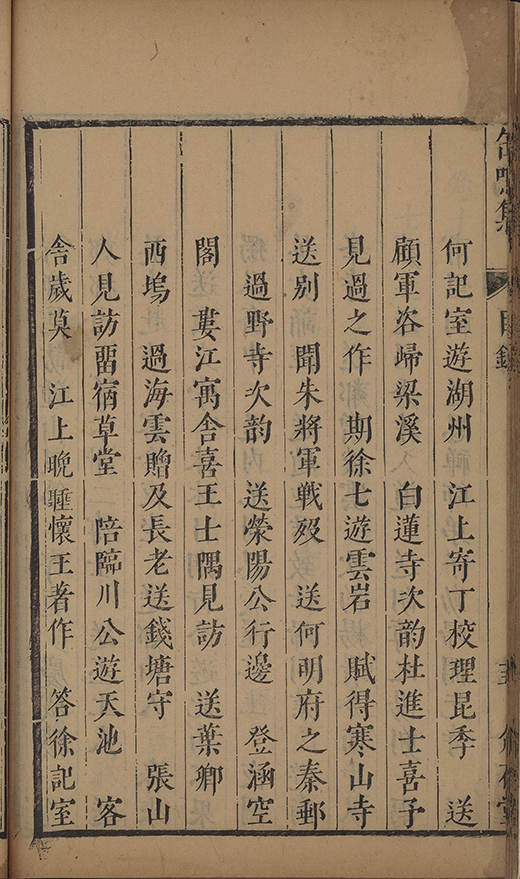 何記室遊湖州　江上寄丁校理昆季　送
顧軍咨歸梁溪　白蓮寺次韵杜進士喜予
見過之作　期徐七遊雲岩　賦得寒山寺
送别　聞朱將軍戰歿　送何明府之秦郵
過野寺次韵　送滎陽公行邊　登涵空
閣　婁江寓舎喜王士隅見訪　送葉卿
西塢　過海雲贈及長老送錢塘守　張山
人見訪畱宿草堂　陪臨川公遊天池　客
舎歲莫　江上晚睡懷王著作　答徐記室